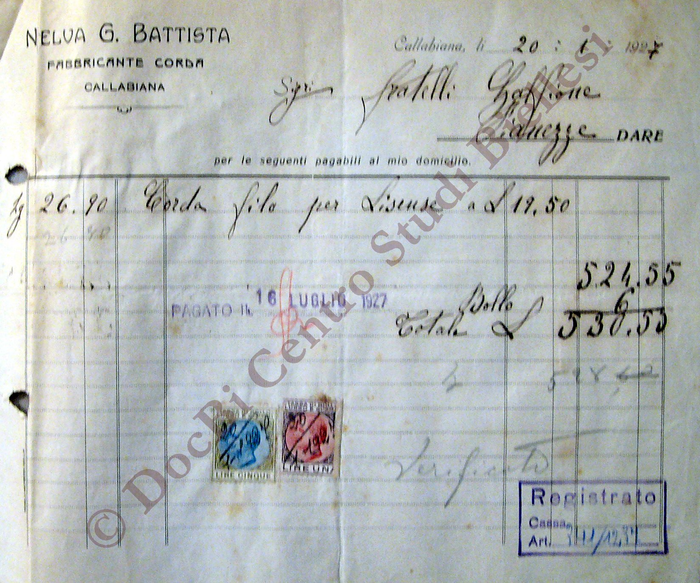 NELVA G. BATTISTA
FABBRICANTE CORDA
CALLABIANA
Callabiana, li 20 : 1 : 1927
Sigri fratelli
Pianezze DARE
per le seguenti pagabili al mio domicilio.
Kg 26.90 Corda filo per Lisense a L 19.50
26.90
524.55
PAGATO IL 16 LUGLIO 1927
Bollo 6
Totale L 530.55
Verificato
LIRE CINQUE
LIRE UNA
Registrato
Cassa
Art.
© DocBi Centro Studi Biellesi